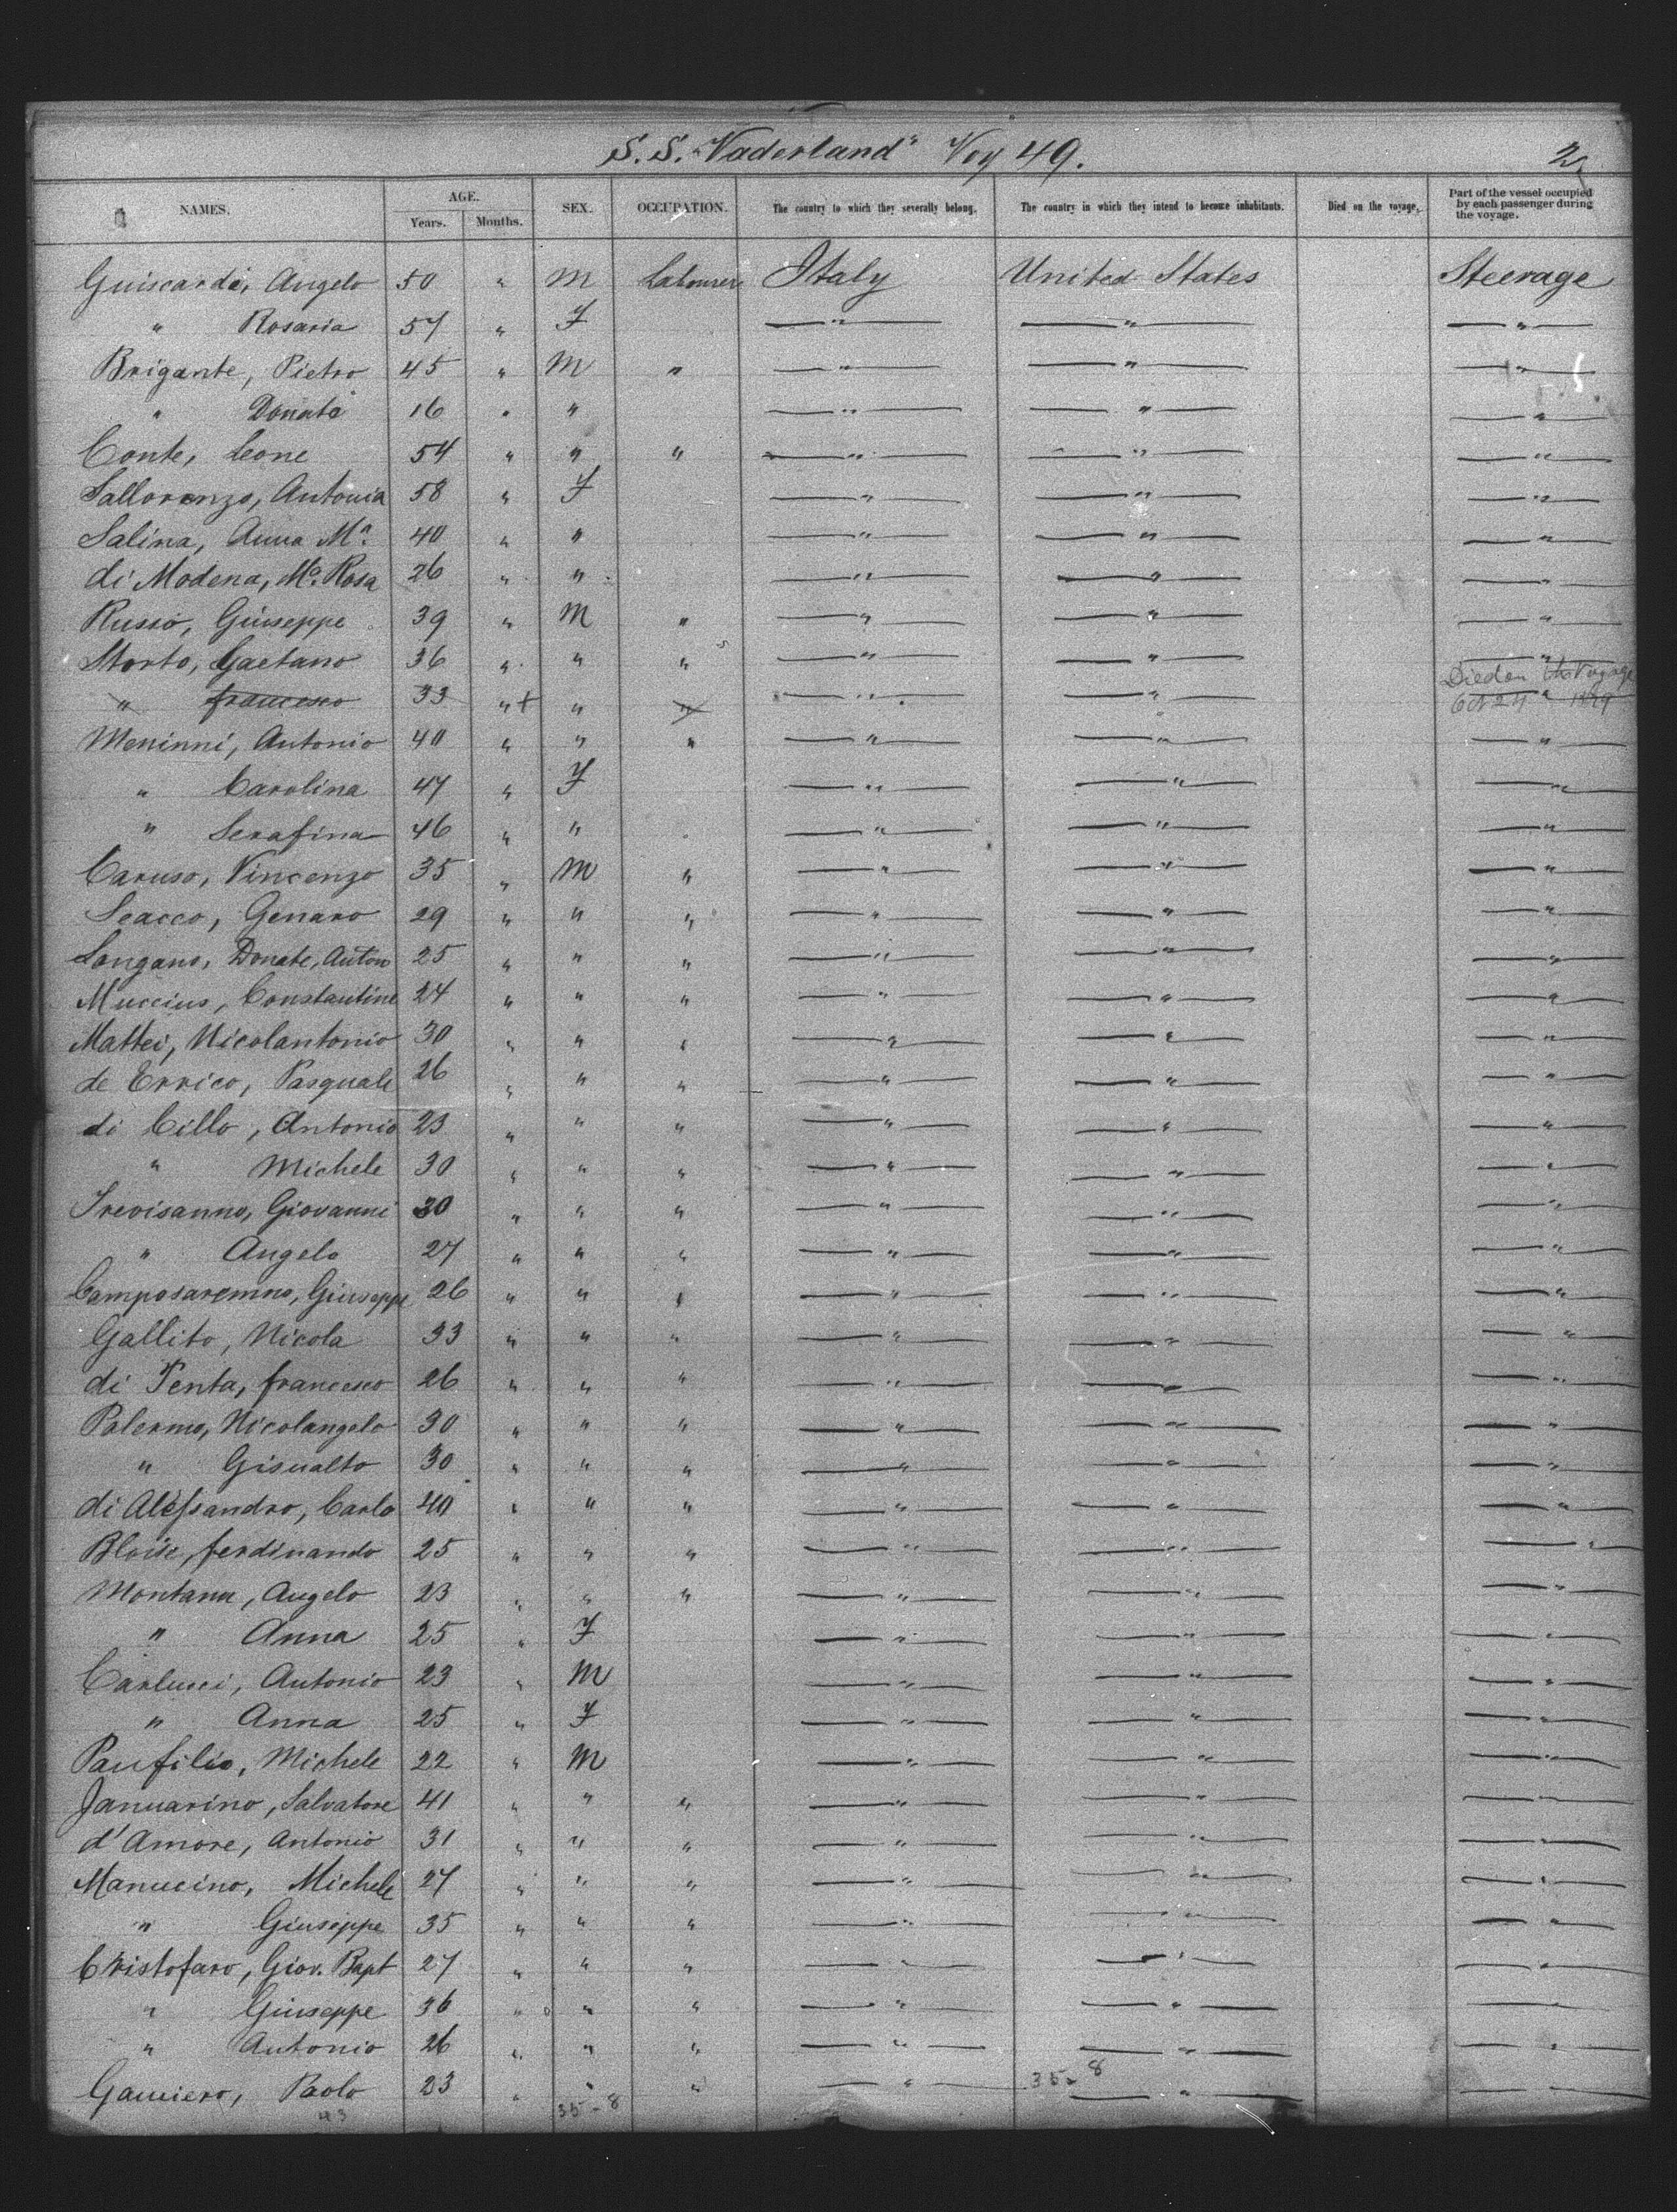 S. S. "Vaderland" Voy 49. 2
NAMES. AGE. Years. Months. SEX. OCCUPATION. The country to which they severally belong. The country in which they intend to become inhabitants. Died on the voyage. Part of the vessel occupied by each passenger during the voyage.
Guiscardi, Angelo 50 " M Labourer Italy United States Steerage
" Rosaria 57 " F " " "
Brigante, Pietro 45 " M " " " "
" Donato 16 " " " " "
Conte, Leone 54 " " " " " "
Sallorenzo, Antonia 58 " F " " "
Salina, Anna Ma. 40 " " " " "
di Modena, Ma. Rosa 26 " " " " "
Russo, Giuseppe 39 " M " " " "
Storto, Gaetano 36 " " " " " "
" francesco 33 " + " " " " " Died on the Voyage Oct 24 1879
Meninni, Antonio 40 " " " " " "
" Carolina 47 " F " " "
" Serafina 46 " " " " "
Caruso, Vincenzo 35 " M " " " "
Scacco, Genaro 29 " " " " " "
Longano, Donate, Anton 25 " " " " " "
Muccius, Constantine 24 " " " " " "
Mattei, Nicolantonio 30 " " " " " "
de Errico, Pasquale 26 " " " " " "
di Cillo, Antonio 23 " " " " " "
" Michele 30 " " " " " "
Trevisanno, Giovanni 30 " " " " " "
" Angelo 27 " " " " " "
Camposaremno, Giuseppe 26 " " " " " "
Gallito, Nicola 33 " " " " " "
di Penta, francesco 26 " " " " " "
Palermo, Nicolangelo 30 " " " " " "
" Gisualto 30 " " " " " "
di Alessandro, Carlo 40 " " " " " "
Bloise, ferdinando 25 " " " " " "
Montana, Angelo 23 " " " " " "
" Anna 25 " F " " "
Carlucci, Antonio 23 " M " " "
" Anna 25 " F " " "
Panfilio, Michele 22 " M " " "
Januarino, Salvatore 41 " " " " " "
d'Amore, Antonio 31 " " " " " "
Manucino, Michele 27 " " " " " "
" Giuseppe 35 " " " " " "
Cristofaro, Giov. Bapt 27 " " " " " "
" Giuseppe 36 " " " " " "
" Antonio 26 " " " " " "
Gauciero, Paolo 23 " " " " " "
43 35-8 35-8